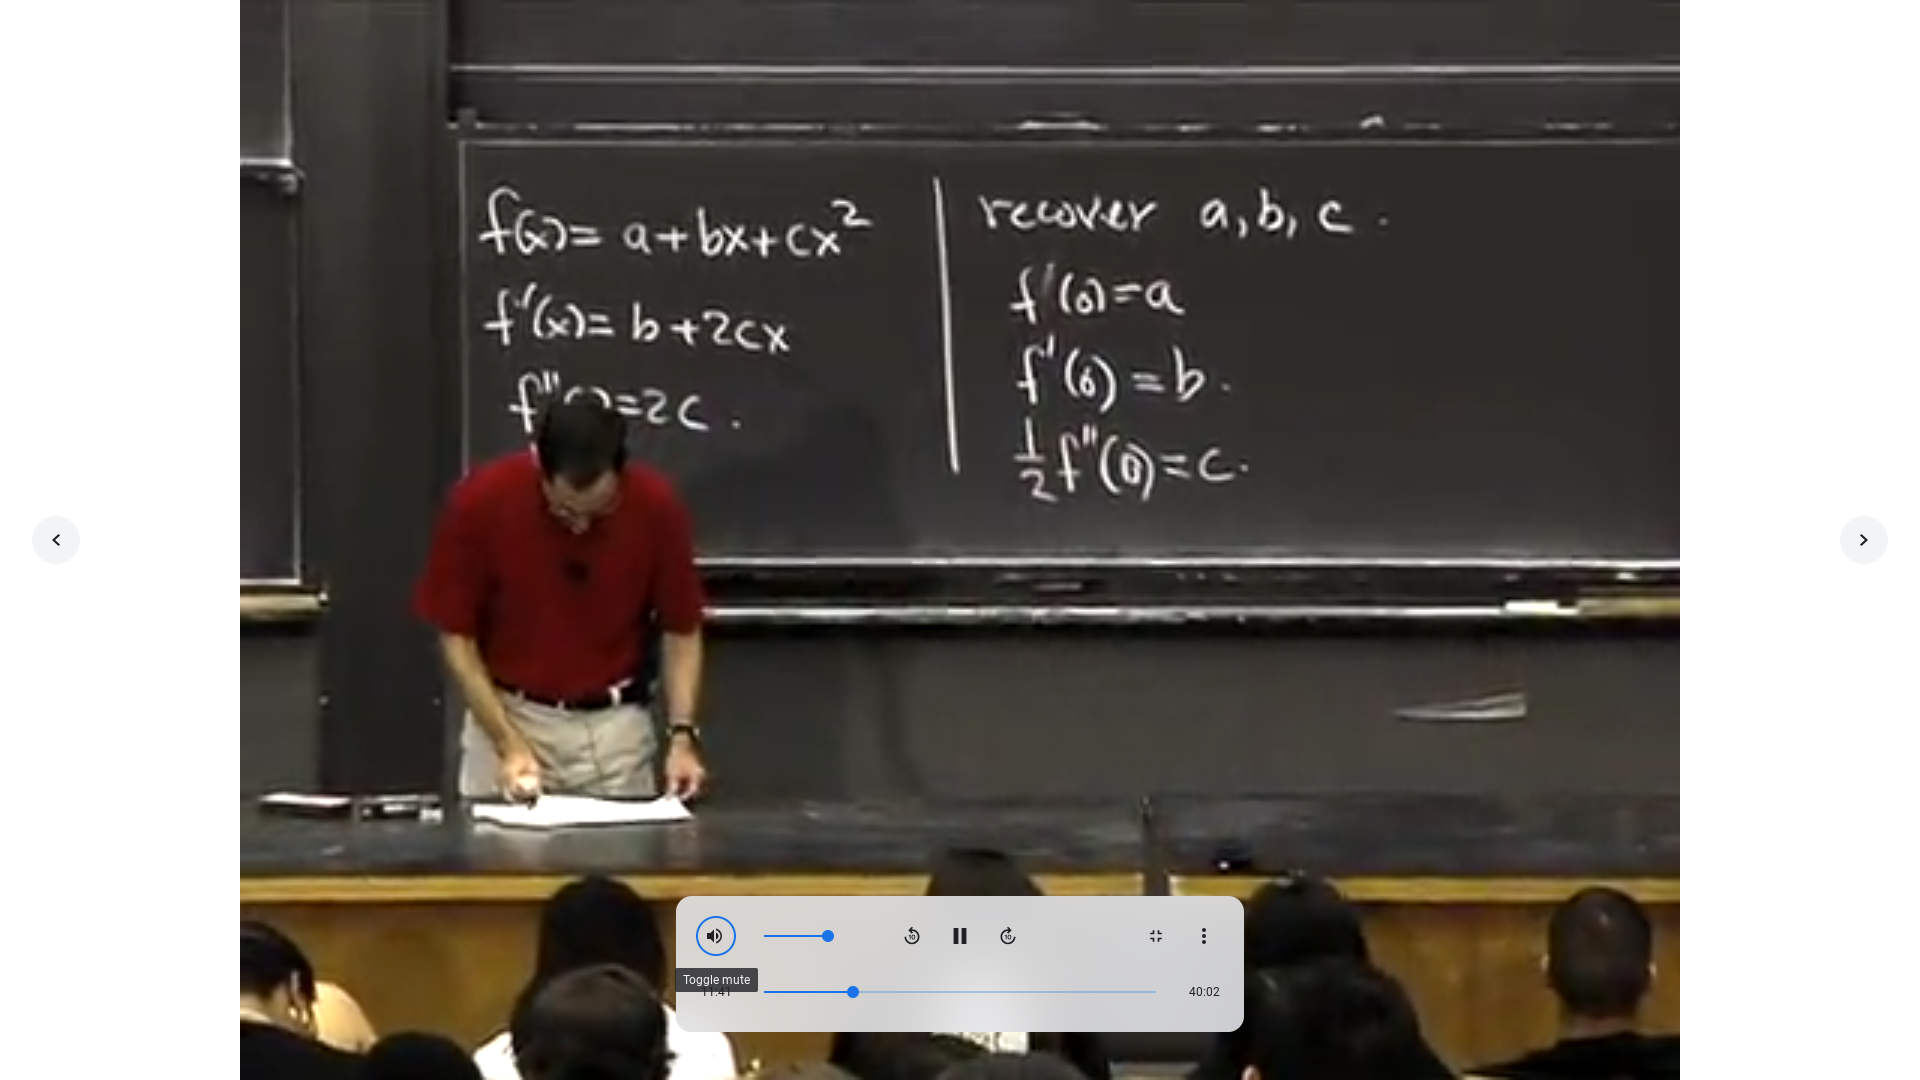 f(x)= a+bx+cx²
f'(x)= b+2cx
f''( )=2c.
recover a, b, c.
f(0)=a
f'(0)=b.
1/2 f''(0)=c.
10
10
Toggle mute
11:41
40:02